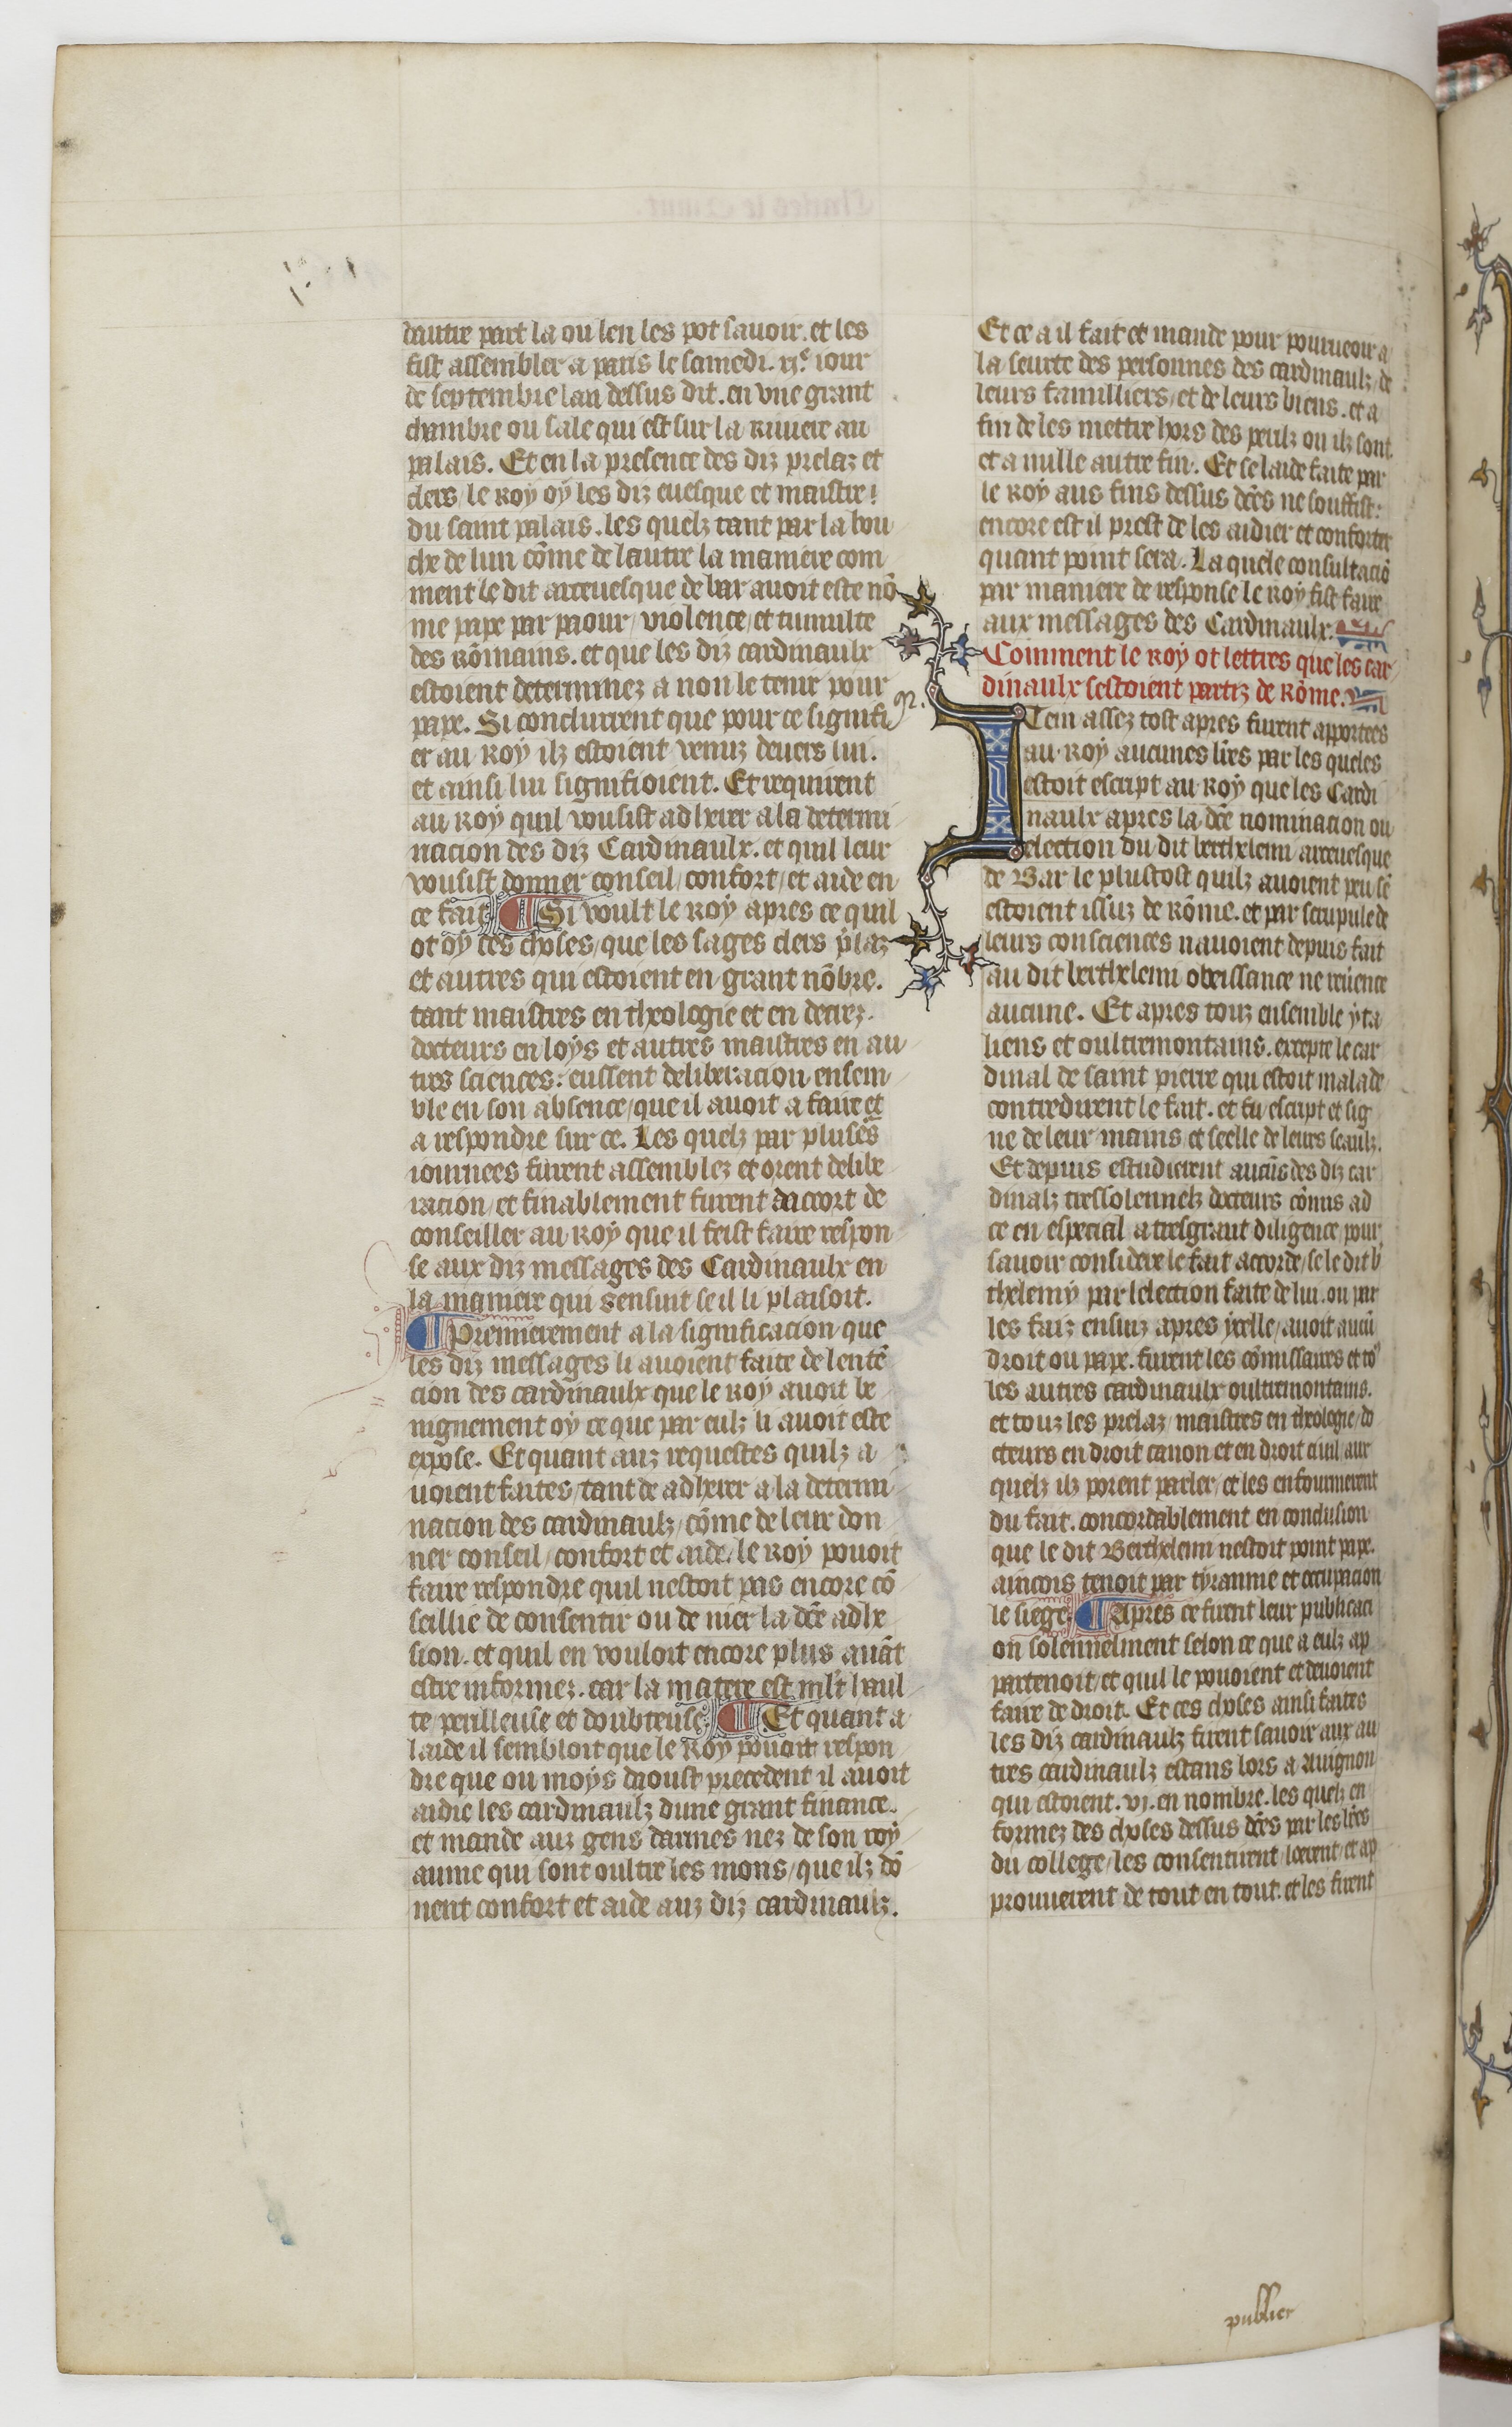 dautre part la ou len les pot sauoir. et les
fist assembler a paris le samedi. xj.e iour
de septembre lan dessus dit. en vne grant
chambre ou sale qui est sur la riuiere au
palais. Et en la presence des diz prelaz et
clers/ le roy oy les diz euesque et maistre
du saint palais. les quelz tant par la bou
che de lun cōme de lautre la maniere com
ment le dit arceuesque de bar auoit este nō
me pape par paour/ violence/ et tumulte
des rōmains. et que les diz cardinaulx
estoient determinez a non le tenir pour
pape. Si conclurrent que pour ce signifi
er au roy ilz estoient venuz deuers lui.
et ainsi lui signifioient. Et requirent
au roy quil vousist adherer a la determi
nacion des diz Cardinaulx. et quil leur
vousist donner conseil/ confort/ et aide en
ce fait. ¶ Si voult le roy apres ce quil
ot oy ces choses/ que les sages clers p̄laz
et autres qui estoient en grant nōbre.
tant maistres en theologie et en decrez.
docteurs en loys et autres maistres en au
tres sciences: eussent deliberacion ensem
ble en son absence/ que il auoit a faire et
a respondre sur ce. Les quelz par pluse̅s
iournees furent assemblez et orent delibe
racion/ et finablement furent daccort de
conseiller au roy que il feist faire respon
se aux diz messages des Cardinaulx en
la maniere qui sensuit se il li plaisoit.
¶ Premierement a la significacion que
les diz messages li auoient faite de lentē
cion des cardinaulx que le roy auoit be
nignement oy ce que par eulz li auoit este
expose. Et quant auz requestes quilz a
uoient faites/ tant de adherer a la determi
nacion des cardinaulz/ cōme de leur don
ner conseil/ confort et aide/ le roy pouoit
faire respondre quil nestoit pas encore cō
seillie de consentir ou de nier la dc̄e adhe
sion. et quil en vouloit encore plus auāt
estre informez. car la matere est ml̄t haul
te/ perilleuse et doubteuse. ¶ Et quant a
laide il sembloit que le Roy pouoit respon
dre que ou moys daoust precedent il auoit
aidie les cardinaulz dune grant finance.
et mande auz gens darmes nez de son roy
aume qui sont oultre les mons/ que ilz dō
nent confort et aide auz diz cardinaulz.
Et ce a il fait et mande pour pourueoir a
la seurte des personnes des cardinaulz/ de
leurs familliers/ et de leurs biens. et a
fin de les mettre hors des perilz ou ilz sont.
et a nulle autre fin. Et se laide faite par
le roy aus fins dessus dc̄es ne souffist:
encore est il prest de les aidier et conforter
quant point sera. La quele consultaciō
par maniere de response le roy fist faire
aux messages des Cardinaulx.
Comment le roy ot lettres que les car
dinaulx sestoient partiz de rōme.
Item assez tost apres furent apportees
au roy aucunes lr̄es par les queles
estoit escript au roy que les Cardi
naulx apres la dc̄e nominacion ou
election du dit berthelemi arceuesque
de Bar le plustost quilz auoient peu sē
estoient issuz de rōme. et par scrupule de
leurs consciences nauoient depuis fait
au dit berthelemi obeissance ne reu̅ence
aucune. Et apres touz ensemble yta
liens et oultremontains. excepte le car
dinal de saint pierre qui estoit malade
contredirent le fait. et fu escript et sig
ne de leur mains et seelle de leurs seaulz.
Et depuis estudierent aucūs des diz car
dinalz tressolennelz docteurs cōmis ad
ce en especial a tresgrant diligence/ pour
sauoir considere le fait accorde/ se le dit b̄
thelemy par lelection faite de lui. ou par
les faiz ensiuz apres ycelle/ auoit aucū
droit ou pape. furent les cōmissaires et to9
les autres cardinaulx oultremontains.
et touz les prelaz/ maistres en theologie/ do
cteurs en droit canon et en droit ciuil aux
quelz ilz porent parler/ et les enfourmerent
du fait. concordablement en conclusion
que le dit Berthelemi nestoit point pape.
aincois tenoit par tyrannie et occupacion
le siege. ¶ Apres ce firent leur publicaci
on solennelment selon ce que a eulz ap
partenoit/ et quil le pouoient et deuoient
faire de droit. Et ces choses ainsi faites
les diz cardinaulz firent sauoir aux au
tres cardinaulz estans lors a Auignon
qui estoient. vj. en nombre. les quelz en
formez des choses dessus dc̄es par les lr̄es
du college/ les consentirent/ loerent/ et ap
prouuerent de tout en tout. et les firent
publier